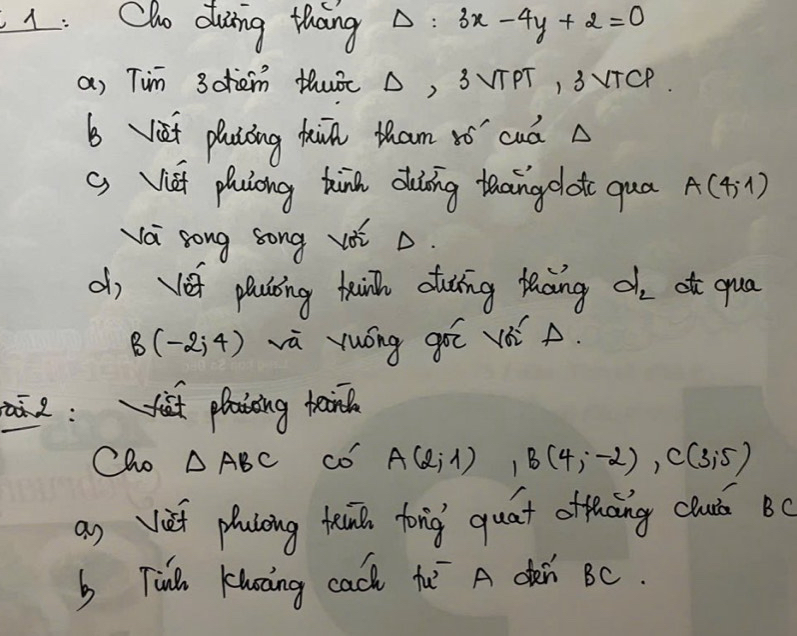 1: Cho đường thẳng Δ : 3x - 4y + 2 = 0
a) Tìm 3 điểm thuộc Δ, 3 VTPT, 3 VTCP.
b Viết phương trình tham số của Δ
c) Viết phương trình đường thẳng d đt qua A(4;1)
và song song với Δ.
d) Viết phương trình đường thẳng d₂ đt qua
B(-2;4) và vuông góc với Δ.
bài 2: Viết phương trình
Cho Δ ABC có A(2;1), B(4;-2), C(3;5)
a) Viết phương trình tổng quát đthẳng chứa BC
b Tính khoảng cách từ A đến BC.